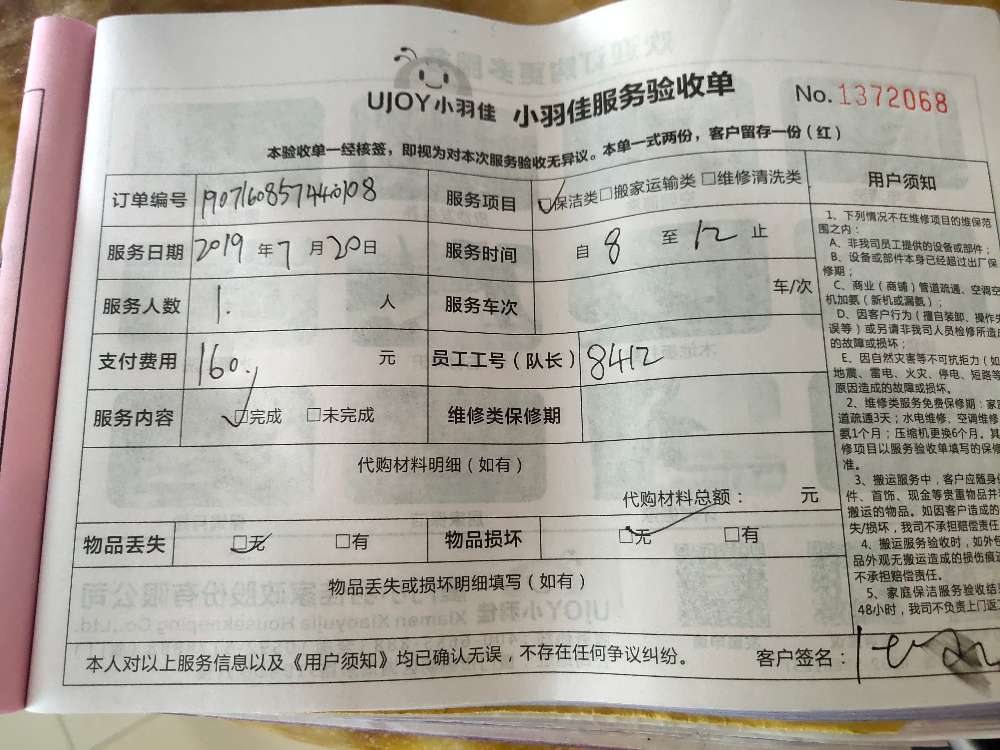 UJOY小羽佳 小羽佳服务验收单 No. 1372068
本验收单一经核签，即视为对本次服务验收无异议。本单一式两份，客户留存一份（红）
订单编号 1907160857440108 服务项目 □保洁类□搬家运输类□维修清洗类
服务日期 2019 年 7 月 20 日 服务时间 自 8 至 12 止
服务人数 1. 人 服务车次 车/次
支付费用 160. 元 员工工号（队长） 8412
服务内容 □完成 □未完成 维修类保修期
代购材料明细（如有）
代购材料总额： 元
物品丢失 □无 □有 物品损坏 □无 □有
物品丢失或损坏明细填写（如有）
本人对以上服务信息以及《用户须知》均已确认无误，不存在任何争议纠纷。 客户签名：
用户须知
1、下列情况不在维修项目的维保范
围之内：
A、非我司员工提供的设备或部件；
B、设备或部件本身已经超过出厂保
修期；
C、商业（商铺）管道疏通、空调空
机加氨（新机或漏氨）；
D、因客户行为（擅自装卸、操作失
误等）或另请非我司人员检修所造成
的故障或损坏；
E、因自然灾害等不可抗拒力（如
地震、雷电、火灾、停电、短路等
原因造成的故障或损坏。
2、维修类服务免费保修期：家庭
道疏通3天；水电维修、空调维修
氨1个月；压缩机更换6个月。其
修项目以服务验收单填写的保修
准。
3、搬运服务中，客户应随身
件、首饰、现金等贵重物品并
搬运的物品。如因客户造成的
失/损坏，我司不承担赔偿责任
4、搬运服务验收时，如外包
品外观无搬运造成的损伤痕迹
不承担赔偿责任。
5、家庭保洁服务验收结
48小时，我司不负责上门返工